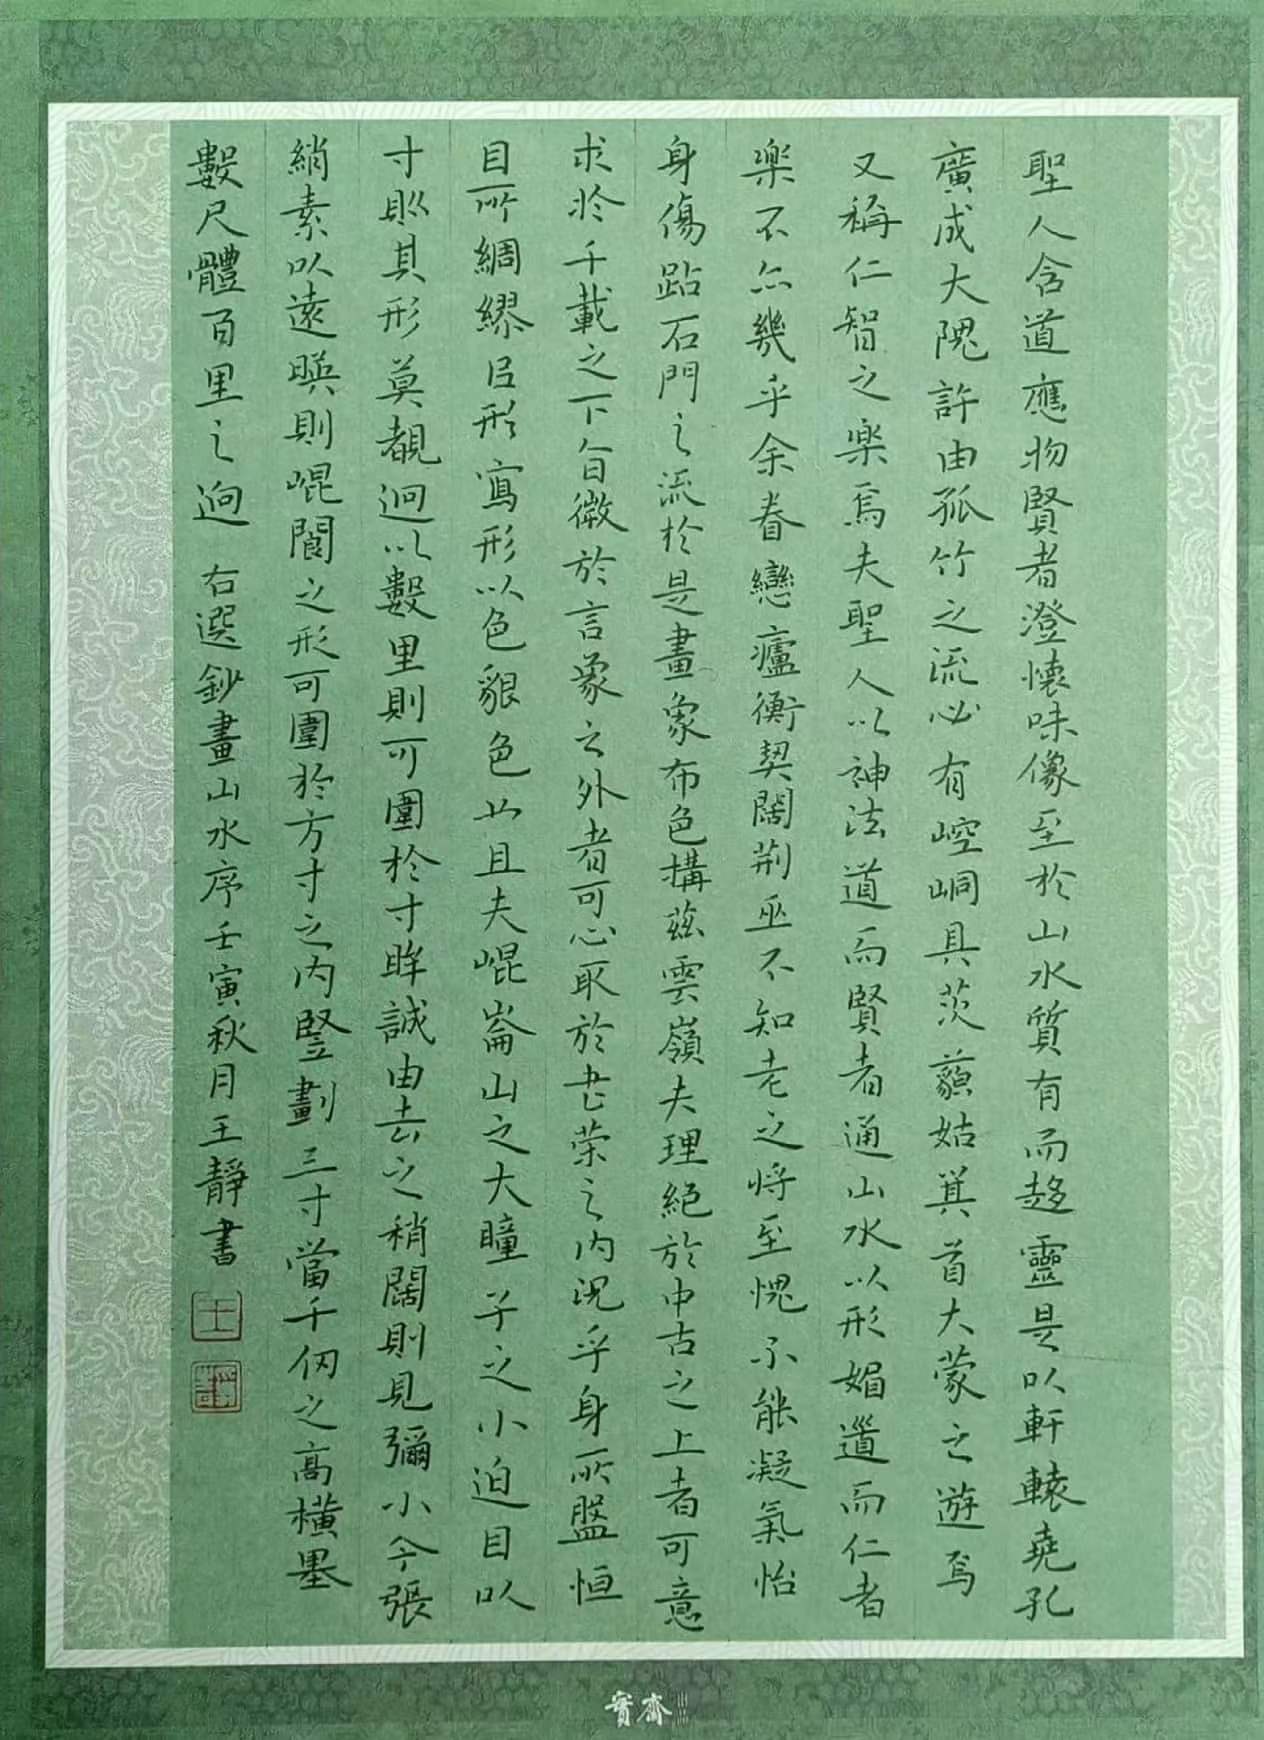 聖人含道應物賢者澄懷味像至於山水質有而趍靈是以軒轅堯孔
廣成大隗許由孤竹之流必有崆峒具茨藐姑箕首大蒙之遊焉
又稱仁智之樂焉夫聖人以神法道而賢者通山水以形媚道而仁者
樂不亦幾乎余眷戀廬衡契闊荆巫不知老之將至愧不能凝氣怡
身傷跕石門之流於是畫象布色構茲雲嶺夫理絕於中古之上者可意
求於千載之下旨微於言象之外者可心取於書策之內況乎身所盤桓
目所綢繆以形寫形以色貌色也且夫崐崙山之大瞳子之小迫目以
寸則其形莫覩迥以數里則可圍於寸眸誠由去之稍闊則見彌小今張
綃素以遠暎則崐閬之形可圍於方寸之內豎劃三寸當千仞之高橫墨
數尺體百里之迥 右選鈔畫山水序壬寅秋月王靜書
寶齋